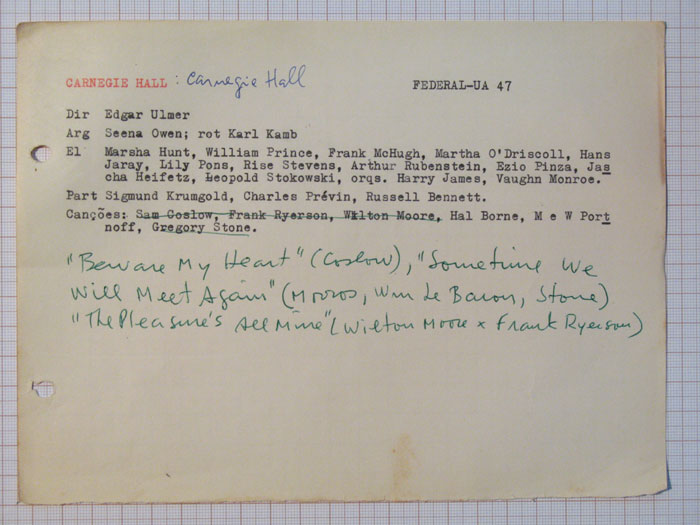 CARNEGIE HALL : Carnegie Hall FEDERAL-UA 47
Dir Edgar Ulmer
Arg Seena Owen; rot Karl Kamb
El Marsha Hunt, William Prince, Frank McHugh, Martha O'Driscoll, Hans
Jaray, Lily Pons, Rise Stevens, Arthur Rubenstein, Ezio Pinza, Jas
cha Heifetz, Leopold Stokowski, orqs. Harry James, Vaughn Monroe.
Part Sigmund Krumgold, Charles Prévin, Russell Bennett.
Canções: Sam Coslow, Frank Ryerson, Wilton Moore, Hal Borne, M e W Port
noff, Gregory Stone.
"Beware My Heart" (Coslow), "Sometime We
Will Meet Again" (Morros, Wm Le Baron, Stone)
"The Pleasure's All Mine" (Wilton Moore x Frank Ryerson)